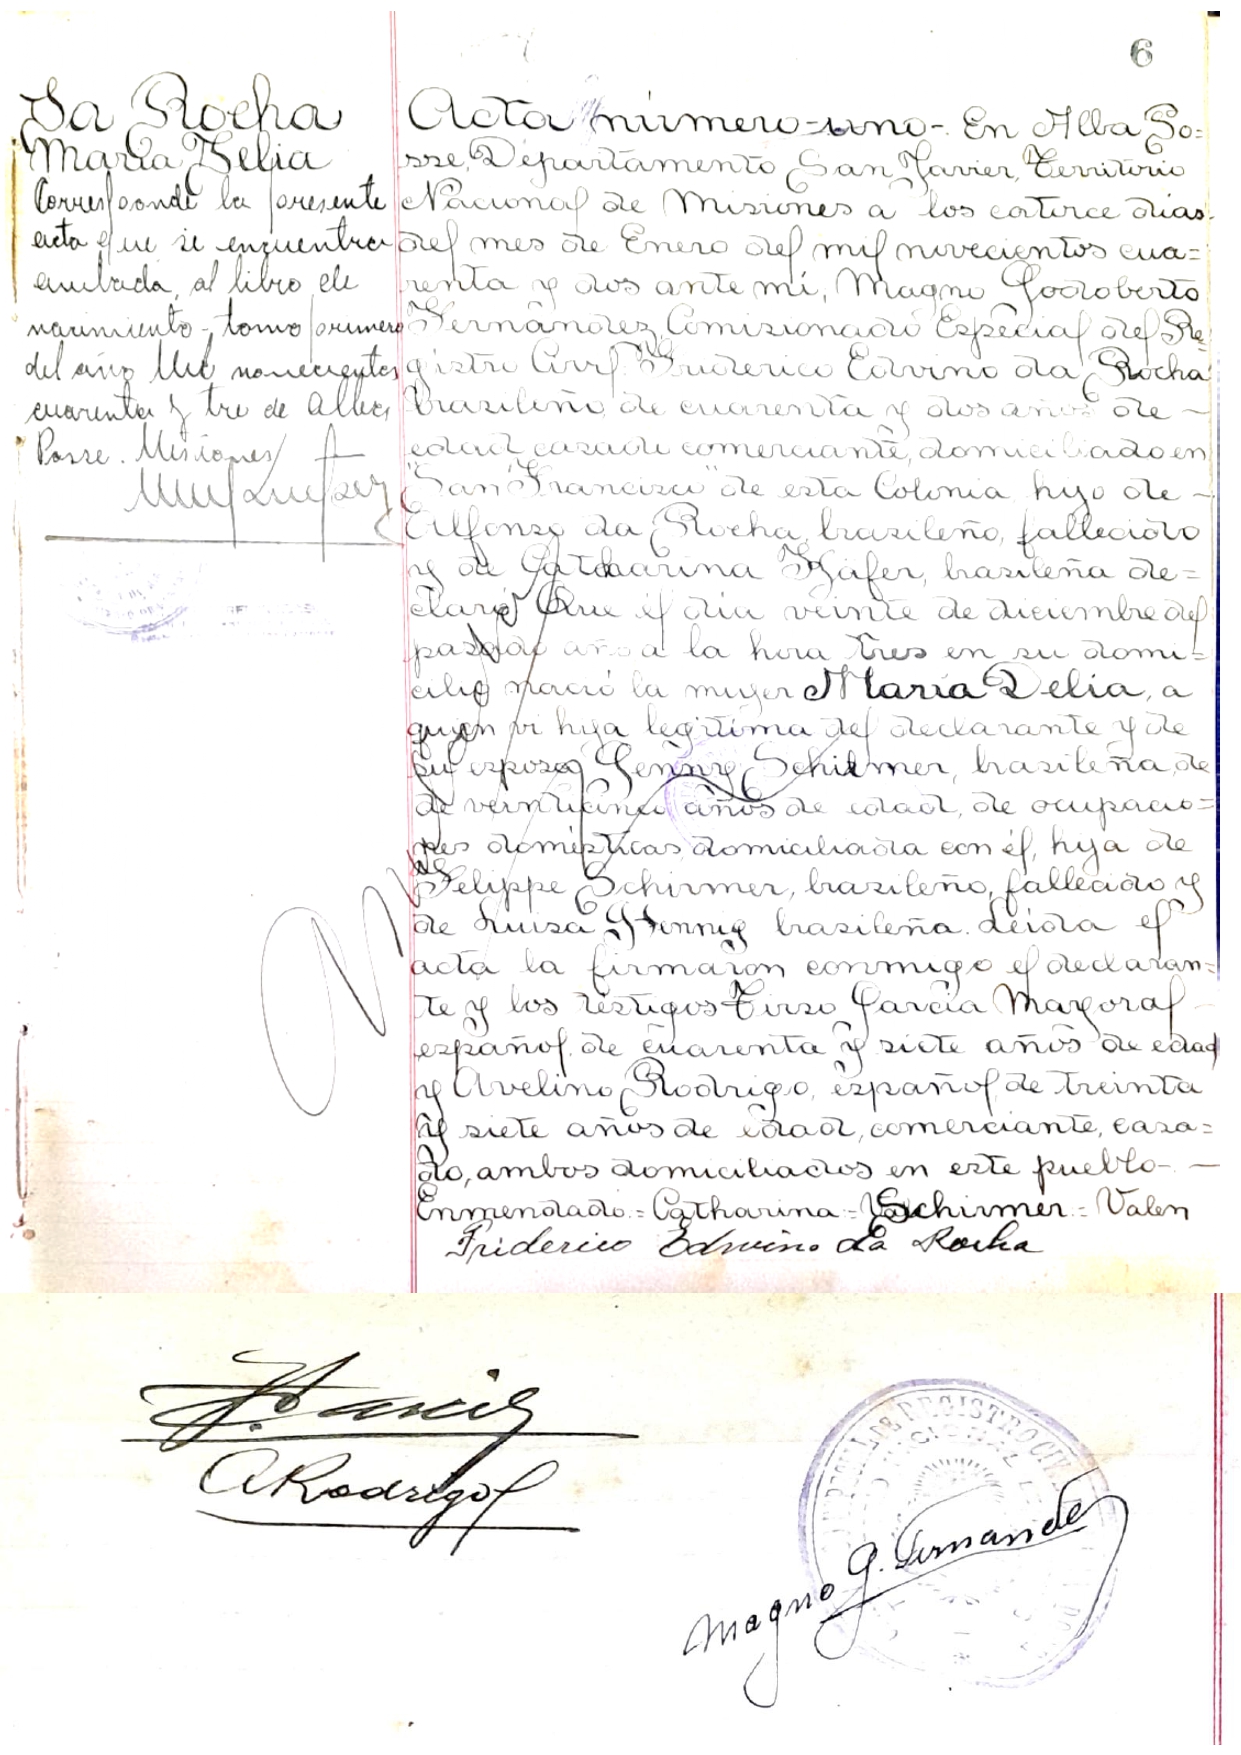 6
Da Rocha
María Delia
Corresponde la presente
acta que se encuentra
anulada, al libro de
nacimiento - tomo primero
del año Mil novecientos
cuarenta y tre de Alba
Posse. Misiones
Acta número=uno-. En Alba Po=
sse, Departamento San Javier, Territorio
Nacional de Misiones a los catorce días
del mes de Enero del mil novecientos cua=
renta y dos ante mí, Magno Godoberto
Fernández, Comisionado Especial del Re
gistro Civil Friderico Edvino da Rocha
brasileño, de cuarenta y dos años de —
edad, casado comerciante, domiciliado en
"San Francisco" de esta Colonia, hijo de —
Alfonso da Rocha, brasileño, fallecido
y de Catharina Käfer, brasileña de=
claró Que el día veinte de diciembre del
pasado año a la hora tres en su domi=
cilio nació la mujer María Delia, a
quien vi hija legítima del declarante y de
su esposa Jenny Schirmer, brasileña, de
de veinticinco años de edad, de ocupacio=
nes domésticas, domiciliada con él, hija de
Felippe Schirmer, brasileño, fallecido y
de Luisa Hennig brasileña. Leída el
acta la firmaron conmigo el declaran=
te y los testigos Tirso García Mayoral
español, de cuarenta y siete años de edad
y Avelino Rodrigo, español, de treinta
y siete años de edad, comerciante, casa=
do, ambos domiciliados en este pueblo-. —
Enmendado:= Catharina = Schirmer:= Valen
Friderico Edwino da Rocha
García
A Rodrigo
REGISTRO CIVIL
Magno G. Fernández